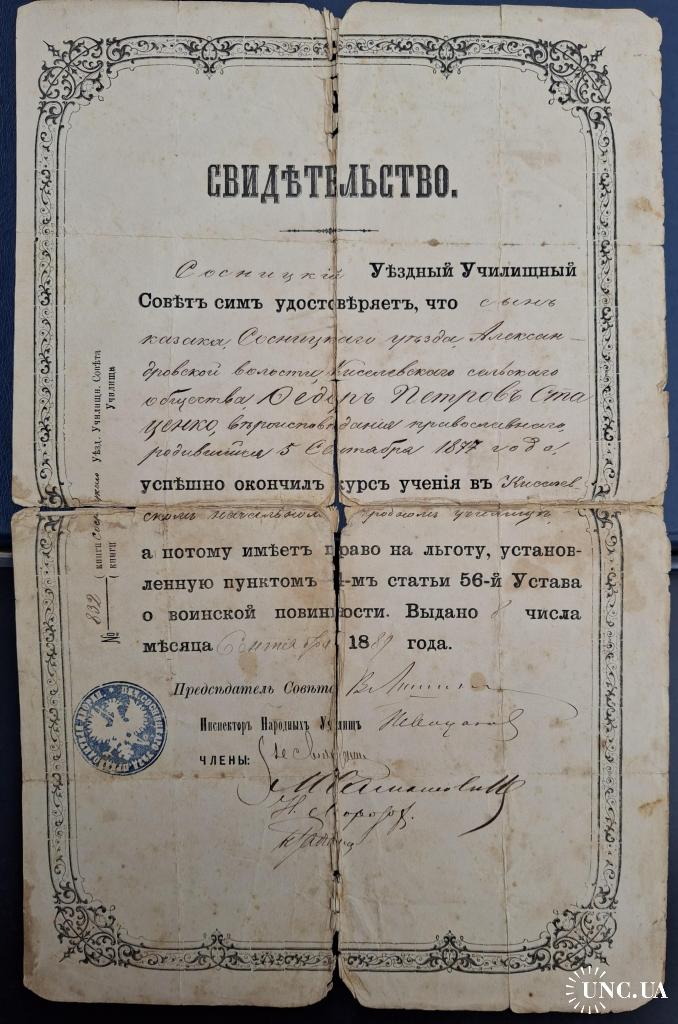 СВИДѢТЕЛЬСТВО.
Сосницкій Уѣздный Училищный
Совѣтъ симъ удостовѣряетъ, что сынъ
казака, Сосницкаго уѣзда, Алексан-
дровской волости, Киселевскаго сельскаго
общества, Ѳедоръ Петровъ Ста
ценко, вѣроисповѣданія православнаго,
родившійся 5 Сентября 1877 года,
успѣшно окончилъ курсъ ученія въ Киселев
скомъ начальномъ народномъ училищѣ,
а потому имѣетъ право на льготу, установ-
ленную пунктомъ 4-мъ статьи 56-й Устава
о воинской повинности. Выдано 8 числа
мѣсяца Сентября 1889 года.
Предсѣдатель Совѣта
Инспекторъ Народныхъ Училищъ
ЧЛЕНЫ:
№ 832 книги Сосницкаго Уѣзд. Училищн. Совѣта
книги Училища
UNC.UA